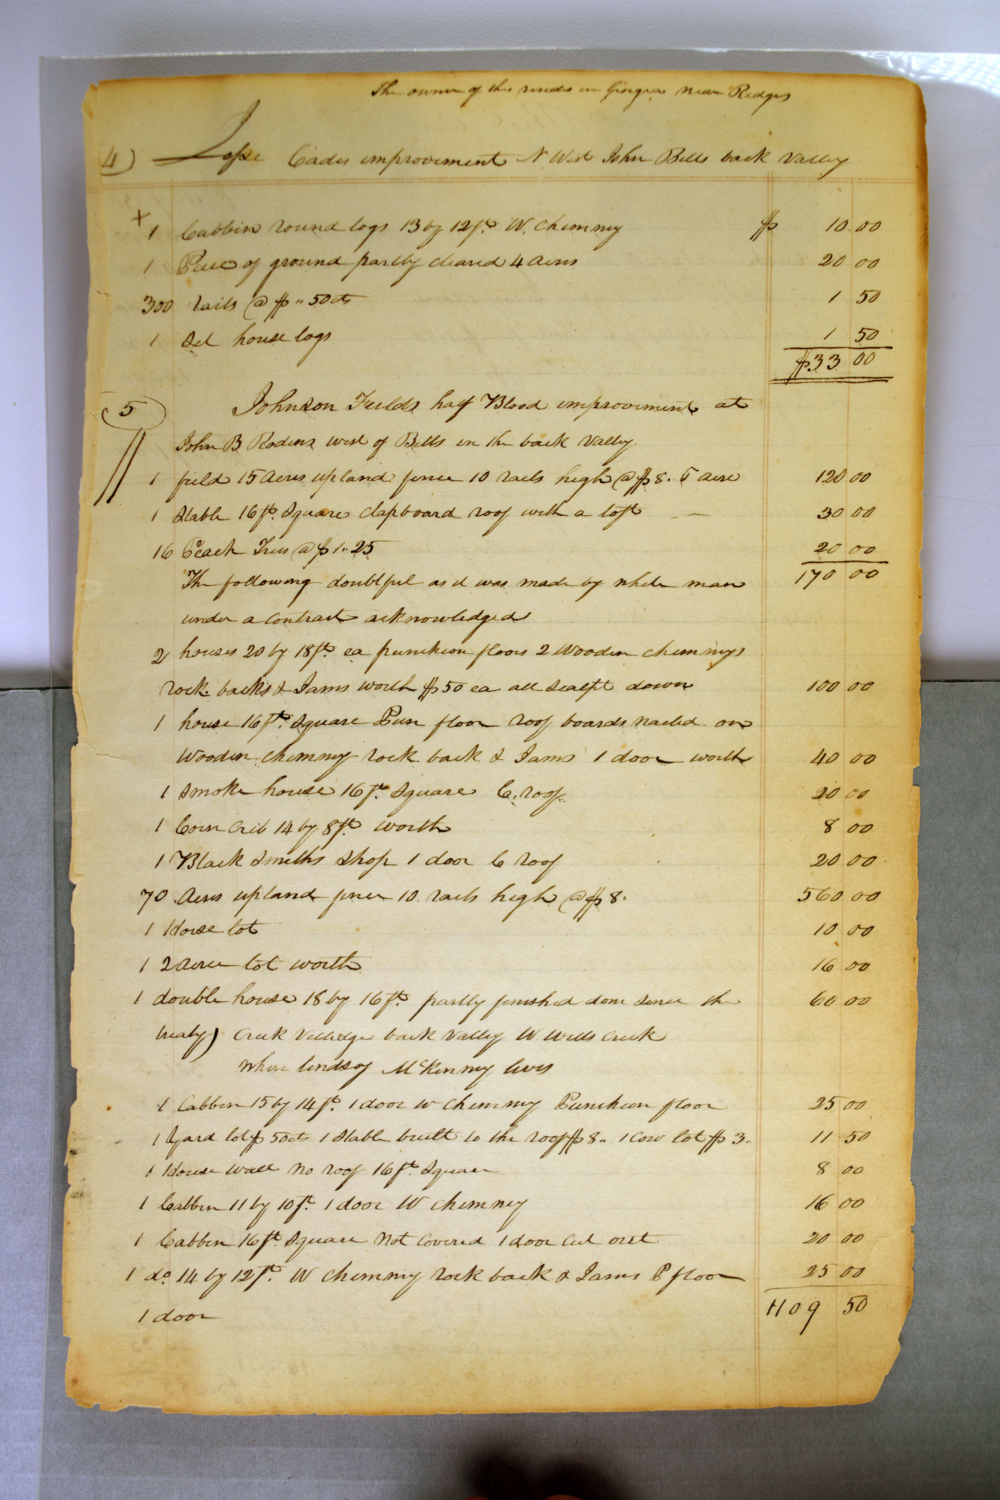 The owner of this resides in Georgia near Ridges
4) Losse Cades improvement N West John Bells back Valley
+ 1 Cabbin round logs 13 by 12 ft. W. Chimney $ 10 00
1 Piece of ground partly cleared 4 acres 20 00
300 rails @ $ " 50 cts 1 50
1 Set house logs 1 50
$33 00
5 Johnson Fields half Blood improvement at
John B Rodens west of Bells in the back Valley
1 field 15 acres upland fence 10 rails high @ $8. acre 120 00
1 Stable 16 ft. Square Clapboard roof with a loft — 30 00
16 Peach Trees @ $1.25 20 00
The following doubtful as it was made by white man 170 00
under a contract acknowledged
2 houses 20 by 18 ft. ea puncheon floors 2 Wooden chimneys
rock backs & Jams worth $50 ea all Scalpt down 100 00
1 house 16 ft. Square Pun floor roof boards nailed on
Wooden chimney rock back & Jams 1 door worth 40 00
1 Smoke house 16 ft. Square C. roof 20 00
1 Corn Crib 14 by 8 ft. worth 8 00
1 Black Smiths Shop 1 door C roof 20 00
70 Acres upland fence 10 rails high @ $8. 560 00
1 Horse lot 10 00
1 2 acre lot worth 16 00
1 double house 18 by 16 ft. partly finished done since the 60 00
treaty) Creek Village back Valley W Wills Creek
where lindsey McKinney lives
1 Cabben 15 by 14 ft. 1 door W Chimney Puncheon floor 25 00
1 Yard lot $ 50 cts 1 Stable built to the roof $8.. 1 Cow lot $3. 11 50
1 House Wall No roof 16 ft. Square 8 00
1 Cabben 11 by 10 ft. 1 door W Chimney 16 00
1 Cabben 16 ft. Square Not Covered 1 door Cut out 20 00
1 do. 14 by 12 ft. W Chimney rock back & Jams P floor 25 00
1 door 1109 50